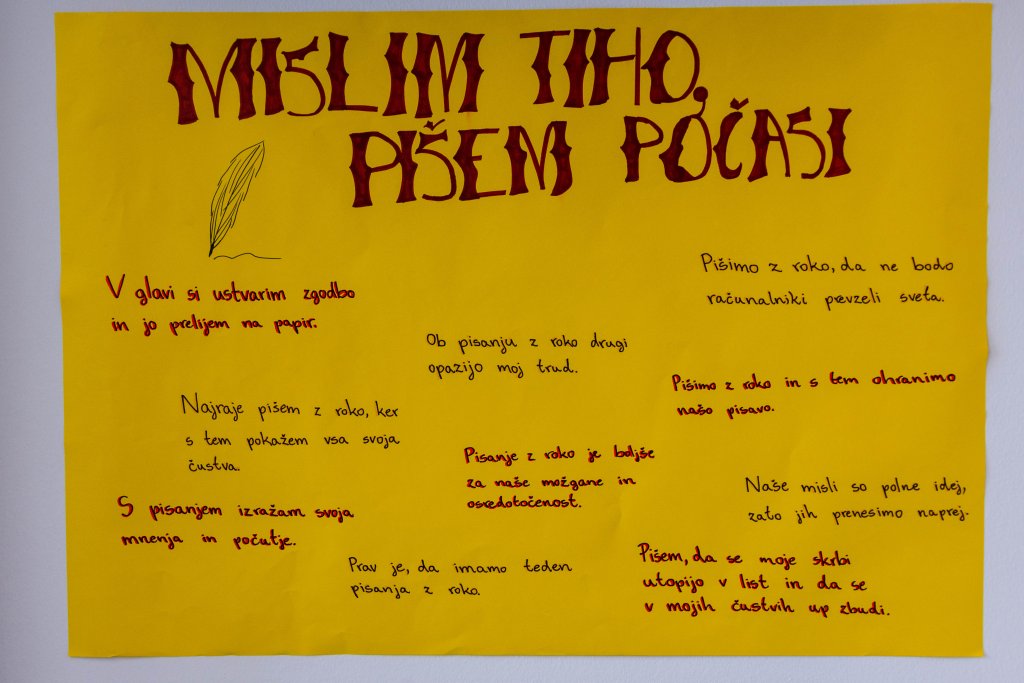 MISLIM TIHO,
PIŠEM POČASI
V glavi si ustvarim zgodbo
in jo prelijem na papir.
Pišimo z roko, da ne bodo
računalniki prevzeli sveta.
Ob pisanju z roko drugi
opazijo moj trud.
Pišimo z roko in s tem ohranimo
našo pisavo.
Najraje pišem z roko, ker
s tem pokažem vsa svoja
čustva.
Pisanje z roko je boljše
za naše možgane in
osredotočenost.
Naše misli so polne idej,
zato jih prenesimo naprej.
S pisanjem izražam svoja
mnenja in počutje.
Prav je, da imamo teden
pisanja z roko.
Pišem, da se moje skrbi
utopijo v list in da se
v mojih čustvih up zbudi.